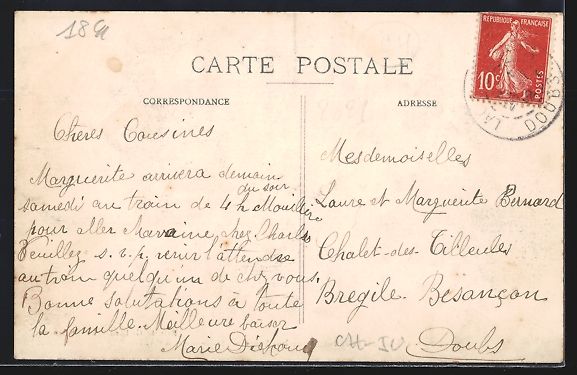 18
CARTE POSTALE
RÉPUBLIQUE FRANÇAISE
10c
POSTES
DOUBS
CORRESPONDANCE
ADRESSE
Chères Cousines
Marguerite arrivera demain
du soir
samedi au train de 4 h
pour aller chez Charles
Veuillez s.v.p. venir l'attendre
au train quelqu'un de chez vous.
Bonne salutations à toute
la famille. Meilleure baiser
Marie
Mesdemoiselles
Laure et Marguerite Bernard
Chalet-des-Tilleules
Bregile. Besançon
Doubs